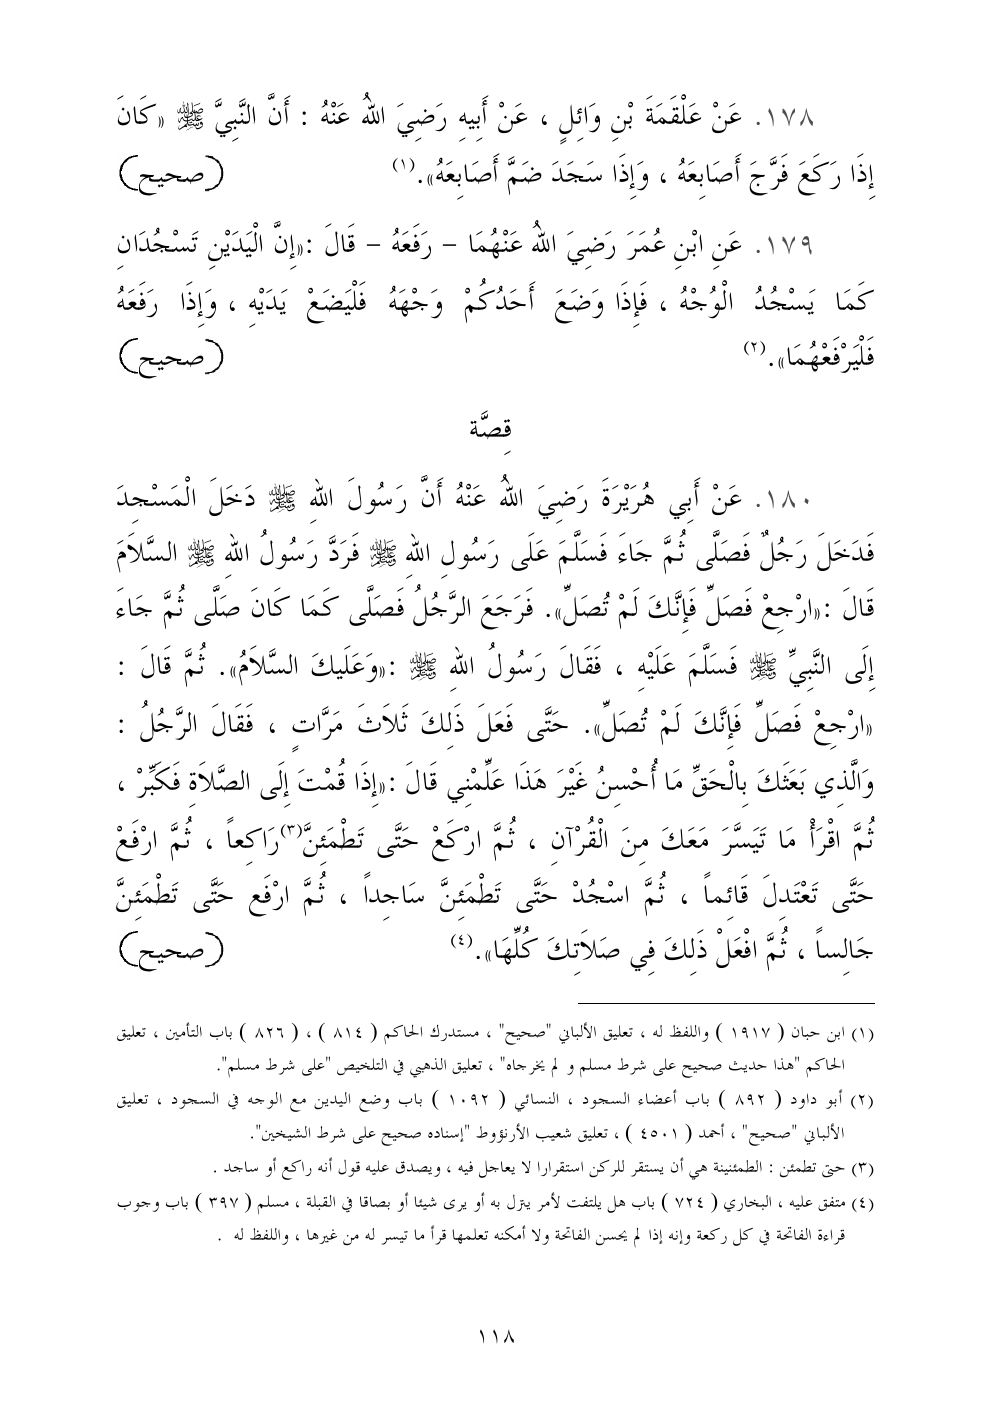 ١٧٨. عَنْ عَلْقَمَةَ بْنِ وَائِلٍ ، عَنْ أَبِيهِ رَضِيَ اللهُ عَنْهُ : أَنَّ النَّبِيَّ ﷺ «كَانَ
إِذَا رَكَعَ فَرَّجَ أَصَابِعَهُ ، وَإِذَا سَجَدَ ضَمَّ أَصَابِعَهُ».(١) (صحيح)
١٧٩. عَنِ ابْنِ عُمَرَ رَضِيَ اللهُ عَنْهُمَا – رَفَعَهُ – قَالَ :«إِنَّ الْيَدَيْنِ تَسْجُدَانِ
كَمَا يَسْجُدُ الْوُجْهُ ، فَإِذَا وَضَعَ أَحَدُكُمْ وَجْهَهُ فَلْيَضَعْ يَدَيْهِ ، وَإِذَا رَفَعَهُ
فَلْيَرْفَعْهُمَا».(٢) (صحيح)
قِصَّة
١٨٠. عَنْ أَبِي هُرَيْرَةَ رَضِيَ اللهُ عَنْهُ أَنَّ رَسُولَ اللهِ ﷺ دَخَلَ الْمَسْجِدَ
فَدَخَلَ رَجُلٌ فَصَلَّى ثُمَّ جَاءَ فَسَلَّمَ عَلَى رَسُولِ اللهِ ﷺ فَرَدَّ رَسُولُ اللهِ ﷺ السَّلاَمَ
قَالَ :«ارْجِعْ فَصَلِّ فَإِنَّكَ لَمْ تُصَلِّ». فَرَجَعَ الرَّجُلُ فَصَلَّى كَمَا كَانَ صَلَّى ثُمَّ جَاءَ
إِلَى النَّبِيِّ ﷺ فَسَلَّمَ عَلَيْهِ ، فَقَالَ رَسُولُ اللهِ ﷺ :«وَعَلَيكَ السَّلاَمُ». ثُمَّ قَالَ :
«ارْجِعْ فَصَلِّ فَإِنَّكَ لَمْ تُصَلِّ». حَتَّى فَعَلَ ذَلِكَ ثَلاَثَ مَرَّاتٍ ، فَقَالَ الرَّجُلُ :
وَالَّذِي بَعَثَكَ بِالْحَقِّ مَا أُحْسِنُ غَيْرَ هَذَا عَلِّمْنِي قَالَ :«إِذَا قُمْتَ إِلَى الصَّلاَةِ فَكَبِّرْ ،
ثُمَّ اقْرَأْ مَا تَيَسَّرَ مَعَكَ مِنَ الْقُرْآنِ ، ثُمَّ ارْكَعْ حَتَّى تَطْمَئِنَّ(٣)رَاكِعاً ، ثُمَّ ارْفَعْ
حَتَّى تَعْتَدِلَ قَائِماً ، ثُمَّ اسْجُدْ حَتَّى تَطْمَئِنَّ سَاجِداً ، ثُمَّ ارْفَع حَتَّى تَطْمَئِنَّ
جَالِساً ، ثُمَّ افْعَلْ ذَلِكَ فِي صَلاَتِكَ كُلِّهَا».(٤) (صحيح)
(١) ابن حبان ( ١٩١٧ ) واللفظ له ، تعليق الألباني "صحيح" ، مستدرك الحاكم ( ٨١٤ ) ، ( ٨٢٦ ) باب التأمين ، تعليق
الحاكم "هذا حديث صحيح على شرط مسلم و لم يخرجاه" ، تعليق الذهبي في التلخيص "على شرط مسلم".
(٢) أبو داود ( ٨٩٢ ) باب أعضاء السجود ، النسائي ( ١٠٩٢ ) باب وضع اليدين مع الوجه في السجود ، تعليق
الألباني "صحيح" ، أحمد ( ٤٥٠١ ) ، تعليق شعيب الأرنؤوط "إسناده صحيح على شرط الشيخين".
(٣) حتى تطمئن : الطمئنينة هي أن يستقر للركن استقرارا لا يعاجل فيه ، ويصدق عليه قول أنه راكع أو ساجد .
(٤) متفق عليه ، البخاري ( ٧٢٤ ) باب هل يلتفت لأمر ينزل به أو يرى شيئا أو بصاقا في القبلة ، مسلم ( ٣٩٧ ) باب وجوب
قراءة الفاتحة في كل ركعة وإنه إذا لم يحسن الفاتحة ولا أمكنه تعلمها قرأ ما تيسر له من غيرها ، واللفظ له .
١١٨